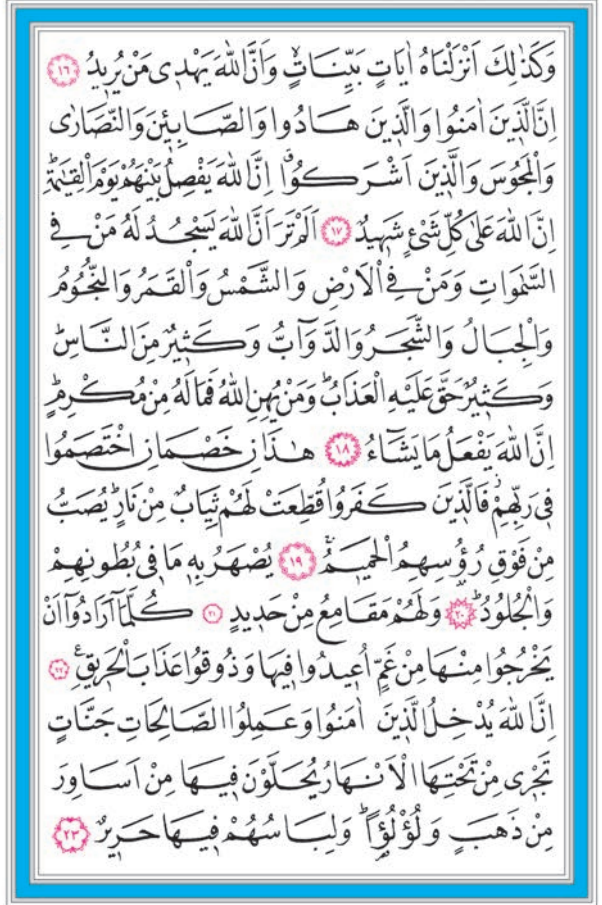 وَكَذٰلِكَ اَنْزَلْنَاهُ اٰيَاتٍ بَيِّنَاتٍۙ وَاَنَّ اللّٰهَ يَهْدٖى مَنْ يُرٖيدُ ﴿١٦﴾
اِنَّ الَّذٖينَ اٰمَنُوا وَالَّذٖينَ هَادُوا وَالصَّابِـٖٔينَ وَالنَّصَارٰى
وَالْمَجُوسَ وَالَّذٖينَ اَشْرَكُواۗ اِنَّ اللّٰهَ يَفْصِلُ بَيْنَهُمْ يَوْمَ الْقِيٰمَةِؕ
اِنَّ اللّٰهَ عَلٰى كُلِّ شَىْءٍ شَهٖيدٌ ﴿١٧﴾ اَلَمْ تَرَ اَنَّ اللّٰهَ يَسْجُدُ لَهُ مَنْ فِى
السَّمٰوَاتِ وَمَنْ فِى الْاَرْضِ وَالشَّمْسُ وَالْقَمَرُ وَالنُّجُومُ
وَالْجِبَالُ وَالشَّجَرُ وَالدَّوَٓابُّ وَكَثٖيرٌ مِنَ النَّاسِؕ
وَكَثٖيرٌ حَقَّ عَلَيْهِ الْعَذَابُؕ وَمَنْ يُهِنِ اللّٰهُ فَمَا لَهُ مِنْ مُكْرِمٍؕ
اِنَّ اللّٰهَ يَفْعَلُ مَا يَشَٓاءُ ﴿١٨﴾ هٰذَانِ خَصْمَانِ اخْتَصَمُوا
فٖى رَبِّهِمْؗ فَالَّذٖينَ كَفَرُوا قُطِّعَتْ لَهُمْ ثِيَابٌ مِنْ نَارٍؕ يُصَبُّ
مِنْ فَوْقِ رُؤُسِهِمُ الْحَمٖيمُۚ ﴿١٩﴾ يُصْهَرُ بِهٖ مَا فٖى بُطُونِهِمْ
وَالْجُلُودُؕ ﴿٢٠﴾ وَلَهُمْ مَقَامِعُ مِنْ حَدٖيدٍ ﴿٢١﴾ كُلَّمَٓا اَرَادُٓوا اَنْ
يَخْرُجُوا مِنْهَا مِنْ غَمٍّ اُعٖيدُوا فٖيهَا وَذُوقُوا عَذَابَ الْحَرٖيقِࣖ ﴿٢٢﴾
اِنَّ اللّٰهَ يُدْخِلُ الَّذٖينَ اٰمَنُوا وَعَمِلُوا الصَّالِحَاتِ جَنَّاتٍ
تَجْرٖى مِنْ تَحْتِهَا الْاَنْهَارُ يُحَلَّوْنَ فٖيهَا مِنْ اَسَاوِرَ
مِنْ ذَهَبٍ وَلُؤْلُؤًاؕ وَلِبَاسُهُمْ فٖيهَا حَرٖيرٌ ﴿٢٣﴾